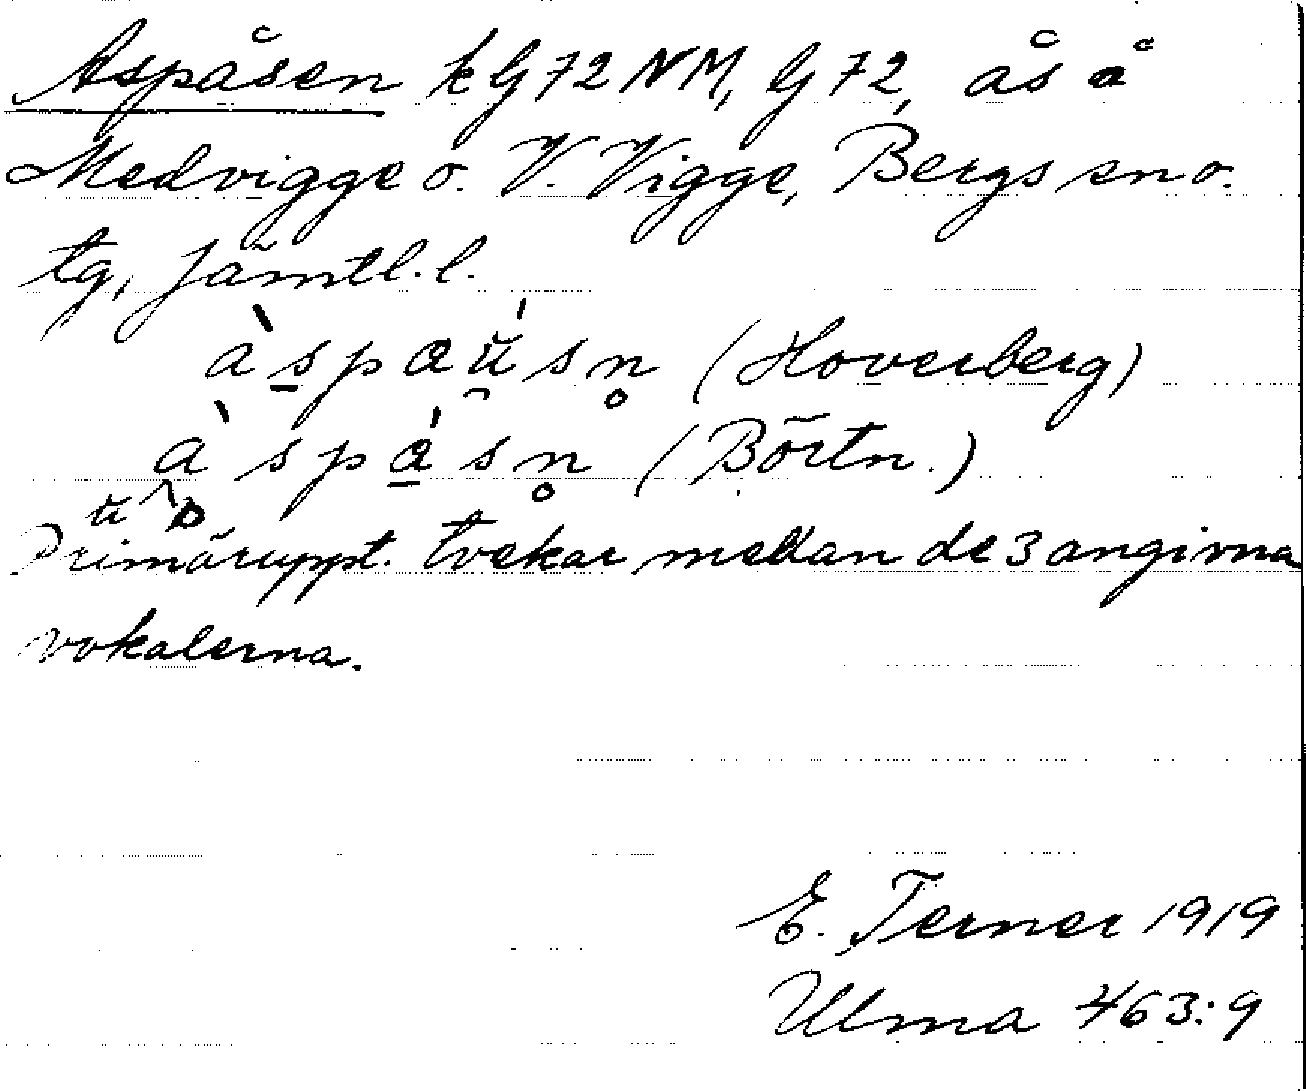 Aspåsen kG72NM, G72, ås å
Medvigge o. V. Vigge, Bergs sn o.
tg, Jämtl. l.
àspaúsn̥ (Hoverberg)
àspåsn̥ (Börtn.)
Primäruppt. tvekar mellan de 3 angivna
vokalerna.
E. Terner 1919
Ulma 463:9